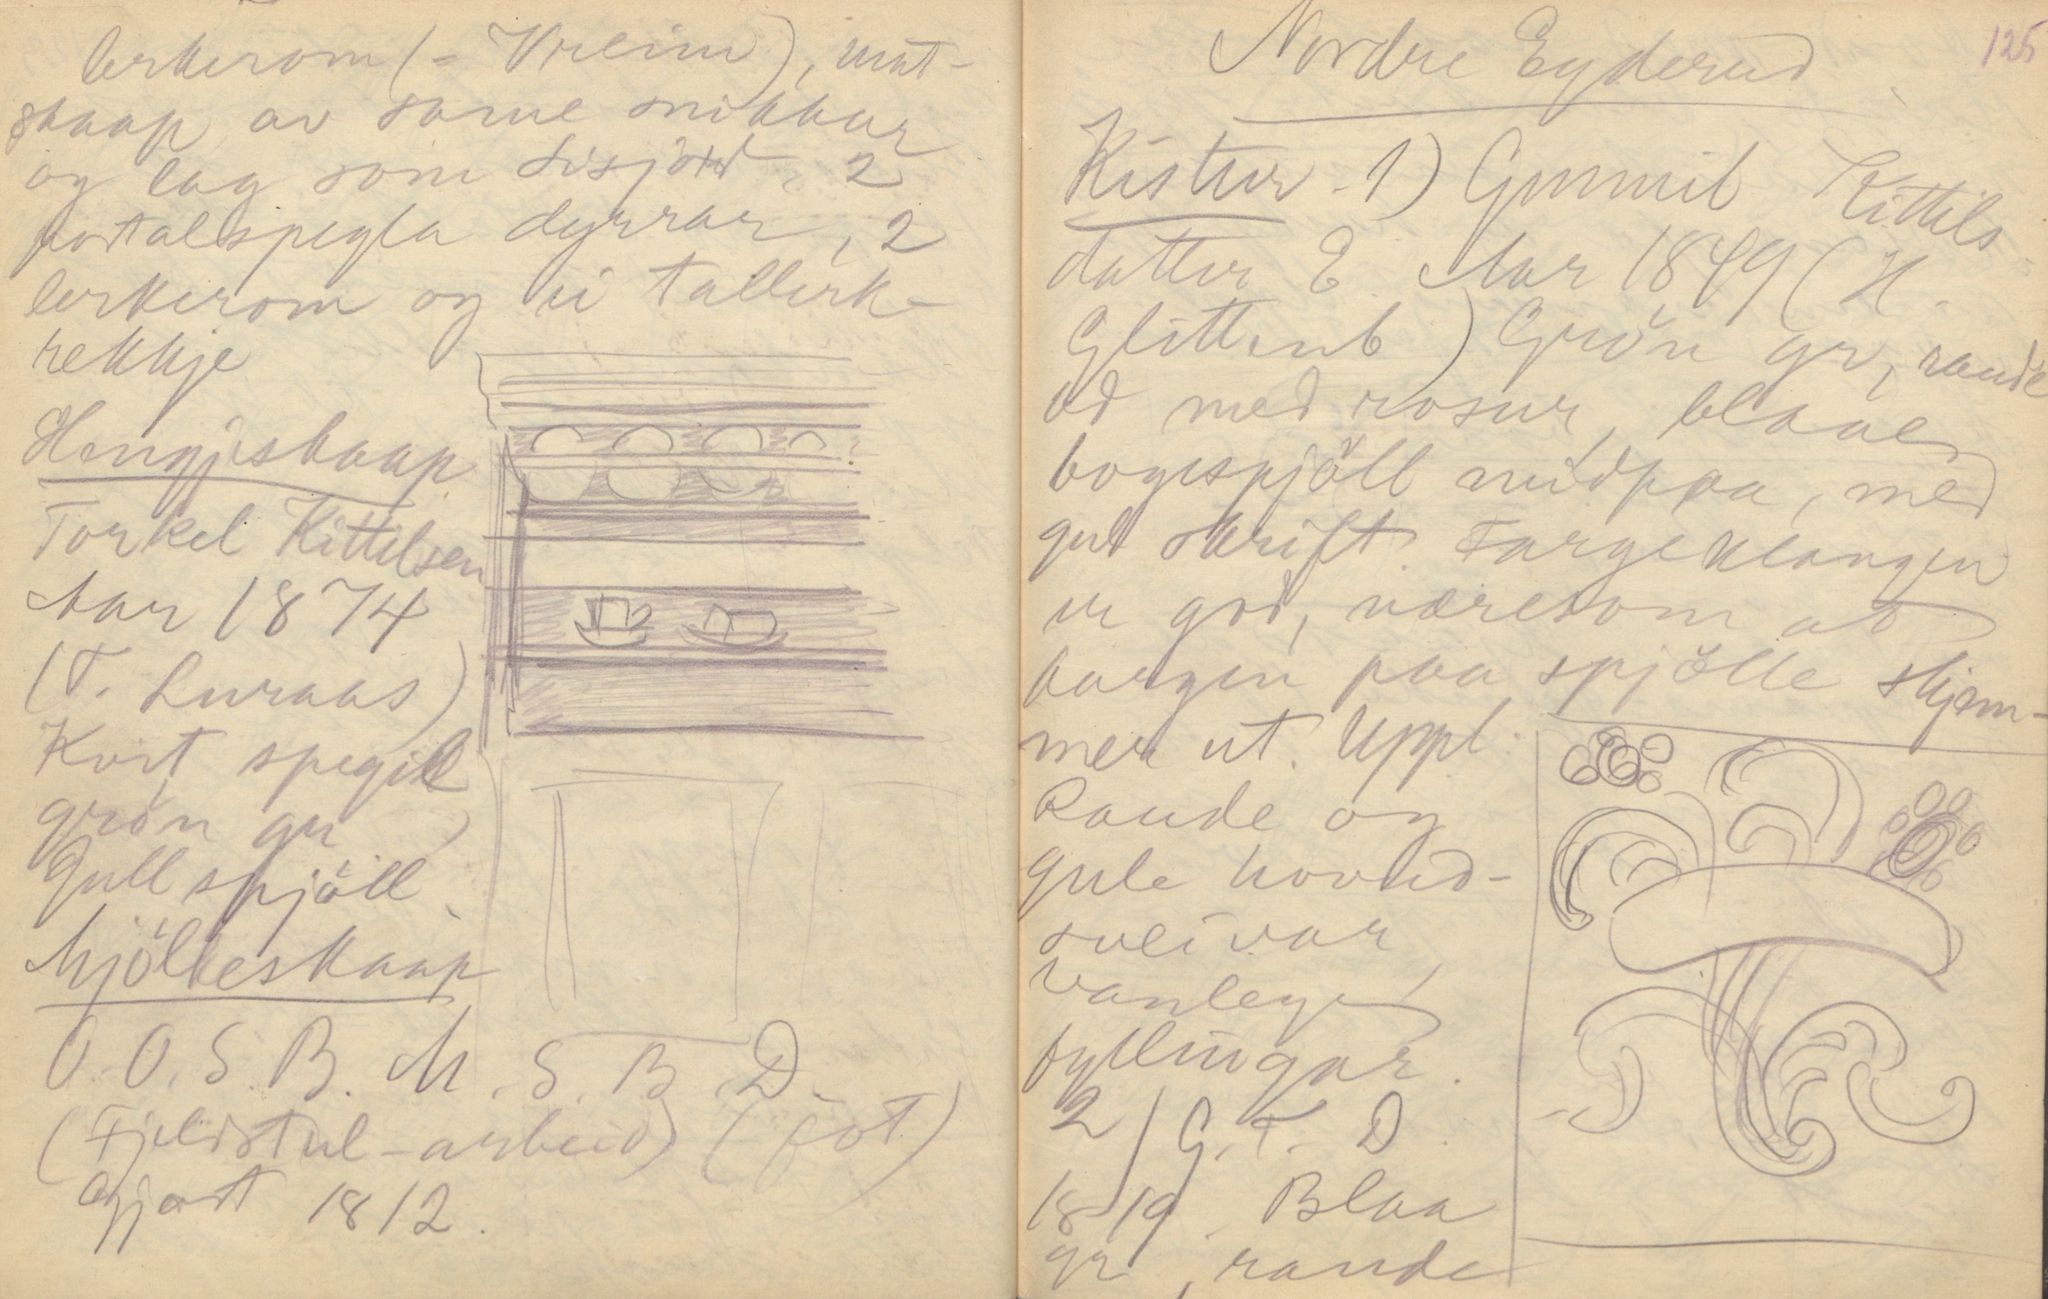 lerkerom (= Vreim), mat-
skaap av same snikkar
og lag som Sisjord, 2
portalspegla dyrrar, 2
lerkerom og ei tallerk-
rekkje
Hengjeskaap
Torkel Kittilsen
Aar 1874
(T. Luraas)
Kvit spegil
grön gr,
gull spjöll.
Mjölkeskaap
O. O. S. B. M. S. B. D.
(Fjeldstul-arbeid) (föt)
Gjort 1812.
125
Nordre Eyderud
Kistur - 1) Gunnil Kittils
datter E. Aar 1849 (H.
Glittenb) Grön gr, raude
ad med rosur, blaae
bogespjöll midpaa, med
gul skrift. Fargeklangen
er god, næresom at
fargen paa spjölle skjem-
mer ut. Uppl.
Raude og
gule hovud-
sveivar,
vanlege
fyllingar.
2/ G. T. D
18-19 Blaa
gr, raude